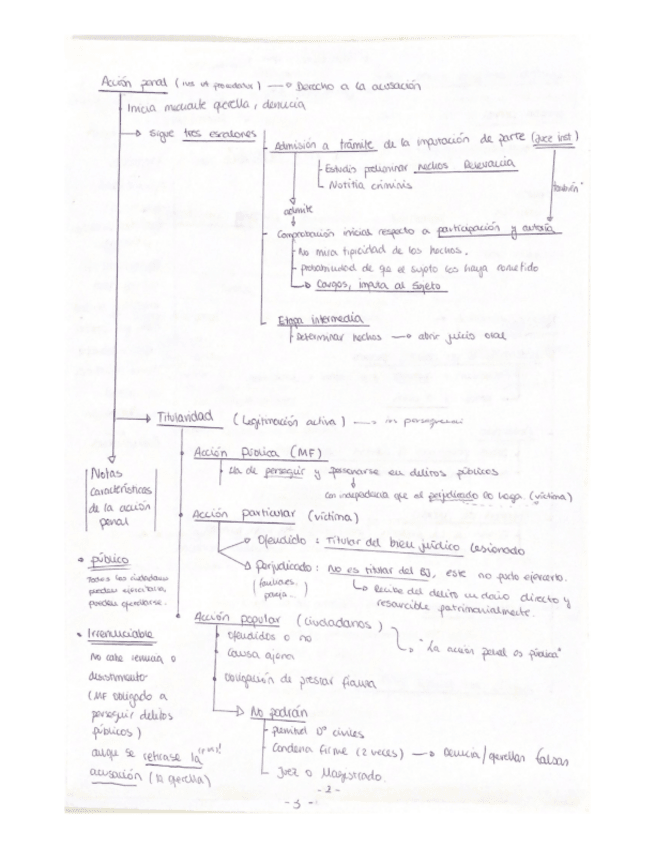 Acción penal (ius ut procedatur) → Derecho a la acusación
Inicia mediante querella, denuncia
→ Sigue tres escalones
Admisión a trámite de la imputación de parte (Juez inst)
Estudio preliminar hechos Relevancia
Notitia criminis
también
admite
Comprobación inicial respecto a participación y autoría
No mira tipicidad de los hechos.
probabilidad de que el sujeto los haya cometido
→ Cargos, imputa al sujeto
Etapa intermedia
Determinar hechos → abrir juicio oral
→ Titularidad (Legitimación activa) → ius persequendi
Acción Pública (MF)
Ha de perseguir y personarse en delitos públicos
con independencia que el perjudicado lo haga. (víctima)
Notas
características
de la acción
penal
Acción particular (víctima)
Ofendido : Titular del bien jurídico lesionado
Perjudicado : No es titular del BJ, este no pudo ejercerlo.
(familiares,
pareja...)
→ Recibe del delito un daño directo y
resarcible patrimonialmente.
• público
Todos los ciudadanos
pueden ejercitarla,
pueden querellarse.
Acción popular (ciudadanos)
→ "La acción penal es pública"
Ofendidos o no
Causa ajena
Obligación de prestar fianza
• Irrenunciable
No cabe renuncia o
desistimiento
(MF obligado a
perseguir delitos
públicos)
aunque se retirase la
acusación (la querella)
→ No podrán
plenitud Dº civiles
Condena firme (2 veces) → Denuncia/querellas falsas
Juez o Magistrado.
-2-
-3-